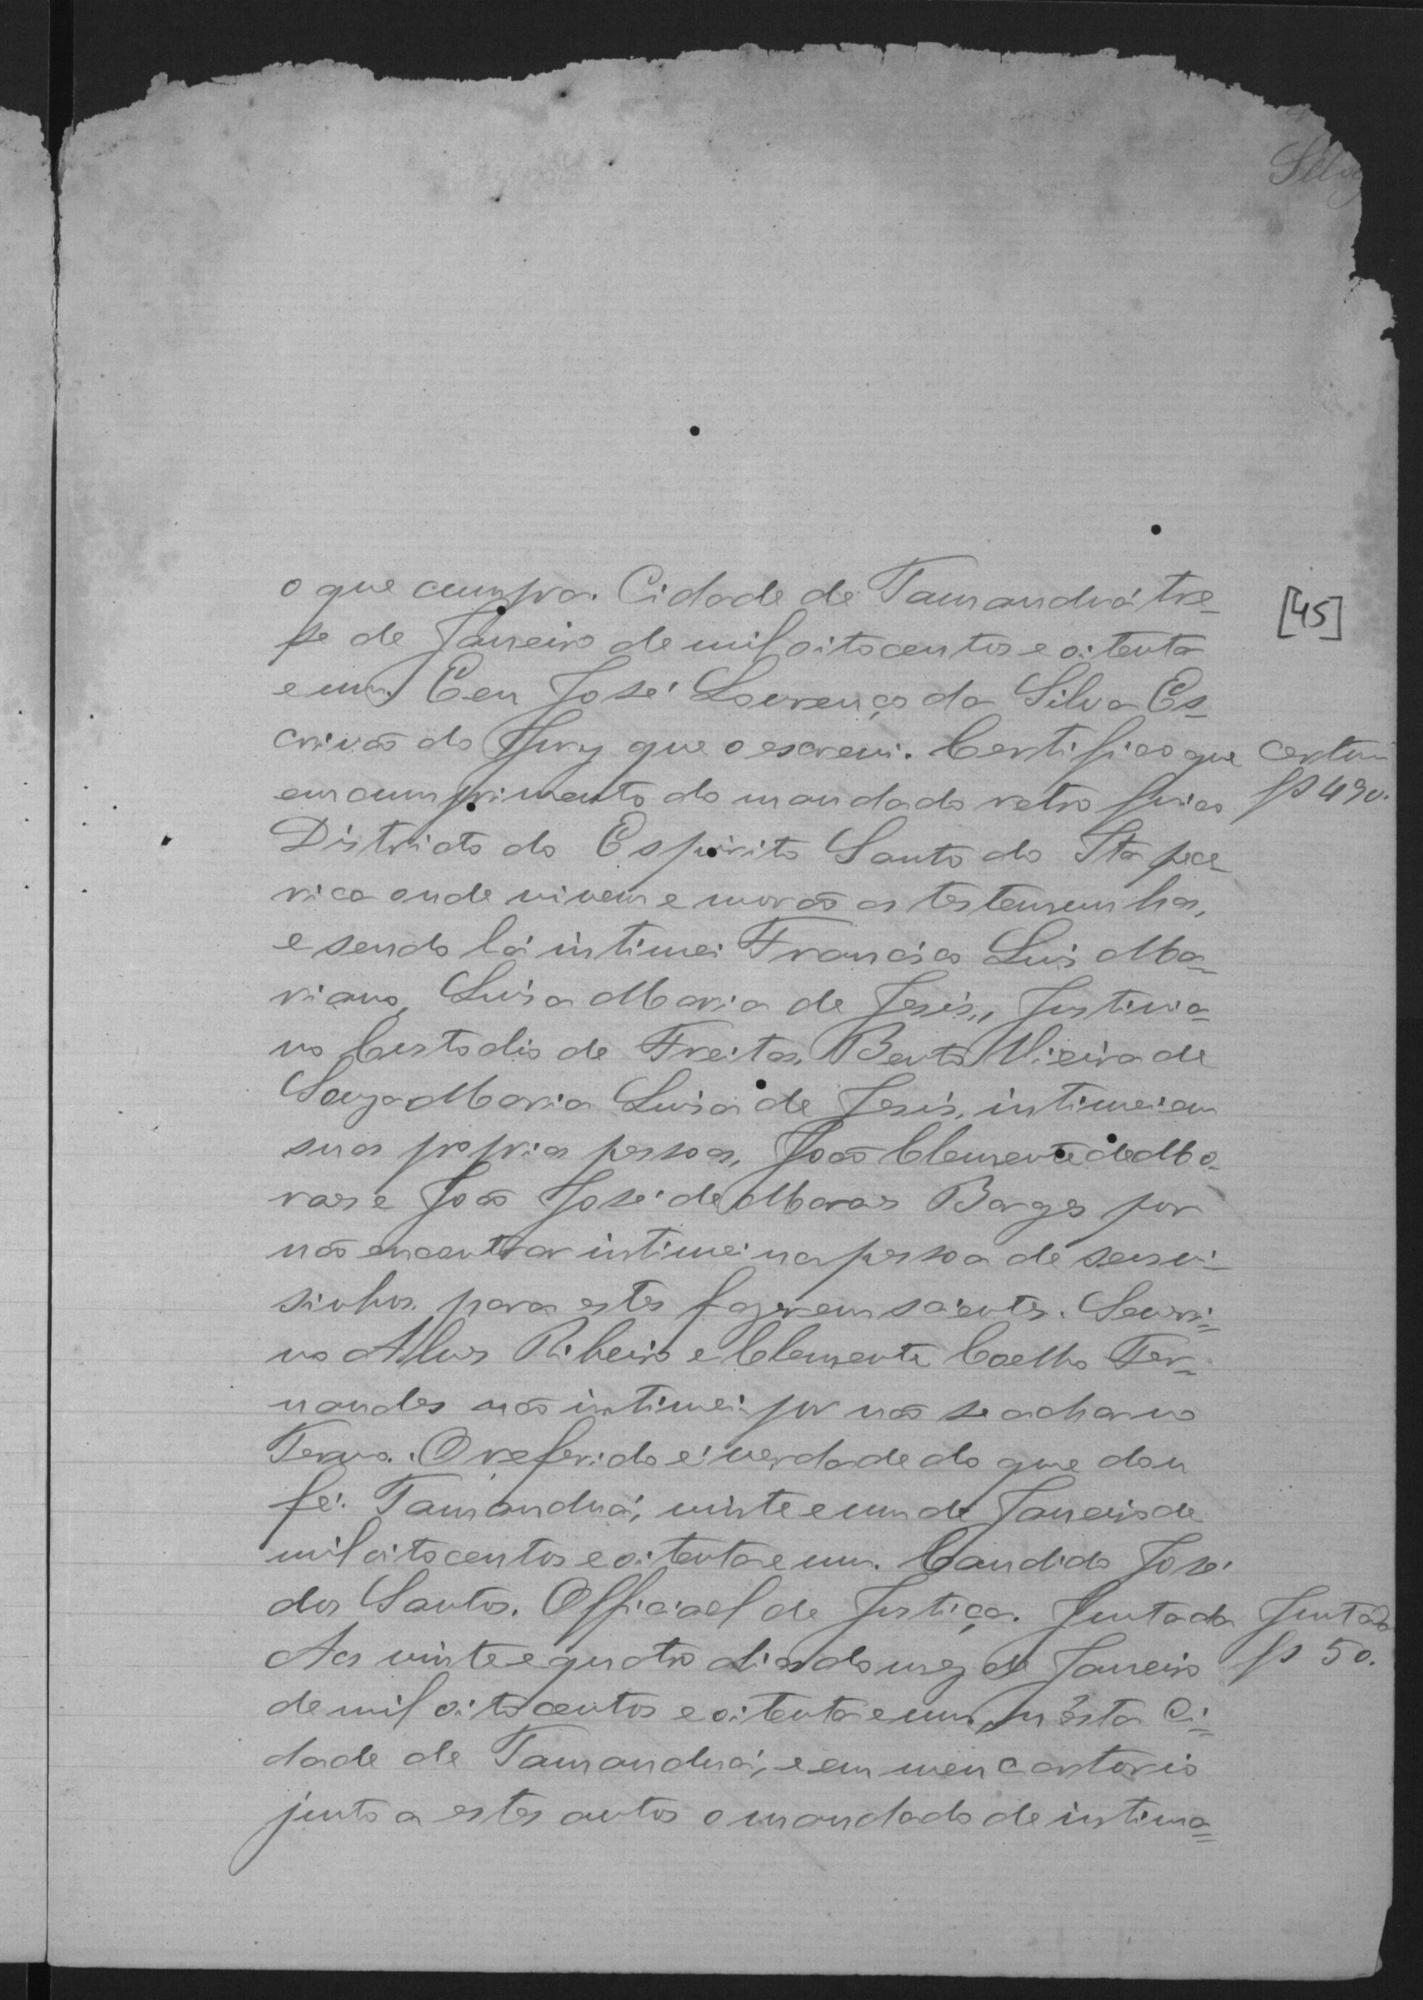 o que cumpra. Cidade de Tamanduá tre-
se de Janeiro de mil oitocentos e oitenta
e um. E eu José Lourenço da Silva Es-
crivão do Jury que o escrevi. Certifico que
em cumprimento do mandado retro fui ao
Districto do Espirito Santo do Itapece-
rica onde vivem e morão as testemunhas,
e sendo lá intimei Francisco Luis Ma-
riano, Luisa Maria de Jesus, Justinia-
no Custodio de Freitas, Bento Vieira de
Souza Maria Luisa de Jesus, intimei em
suas proprias pessoas, João Clemente de Mo-
raes e João José de Moraes Borges por
não encontrar intimei na pessoa de seus vi-
sinhos para estes fazerem scientes. Severi-
no Alves Ribeiro e Clemente Coelho Fer-
nandes não intimei por não se achar no
Termo. O referido é verdade do que dou
fé. Tamanduá, vinte e um de Janeiro de
mil oitocentos e oitenta e um. Candido José
dos Santos. Official de Justiça. Juntada
Aos vinte e quatro dias do mez de Janeiro
de mil oitocentos e oitenta e um, n'esta Ci-
dade de Tamanduá, e em meu cartorio
junto a estes autos o mandado de intima-
[45]
490.
50.